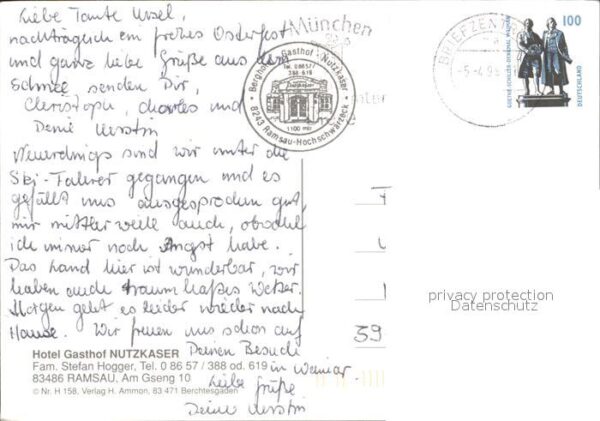 Liebe Tante Ursel,
nachträglich ein frohes Osterfest
und ganz liebe Grüße aus dem
Schnee senden Dir,
Christoph, Charles und
Deine Kerstin
Neuerdings sind wir unter die
Ski-Fahrer gegangen und es
gefällt uns ausgesprochen gut,
mir mittlerweile auch, obwohl
ich immer noch Angst habe.
Das Land hier ist wunderbar, wir
haben auch traumhaftes Wetter.
Morgen geht es leider wieder nach
Hause. Wir freuen uns schon auf
Deinen Besuch
in Weimar.
Liebe Grüße
Deine Kerstin
Hotel Gasthof NUTZKASER
Fam. Stefan Hogger, Tel. 0 86 57 / 388 od. 619
83486 RAMSAU, Am Gseng 10
© Nr. H 158, Verlag H. Ammon, 83 471 Berchtesgaden
München
Berghotel Gasthof - Nutzkaser
Tel. 0 86 57/
388 619
1100 m
8243 Ramsau-Hochschwarzeck
BRIEFZENTR
100
GOETHE-SCHILLER-DENKMAL WEIMAR
DEUTSCHLAND
39
privacy protection
Datenschutz